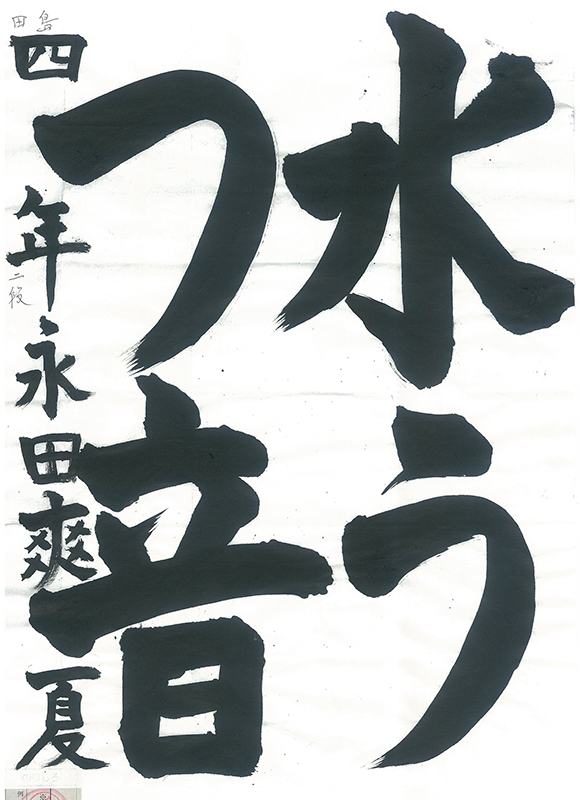 水う
つ音
四年永田爽夏
田島
二段